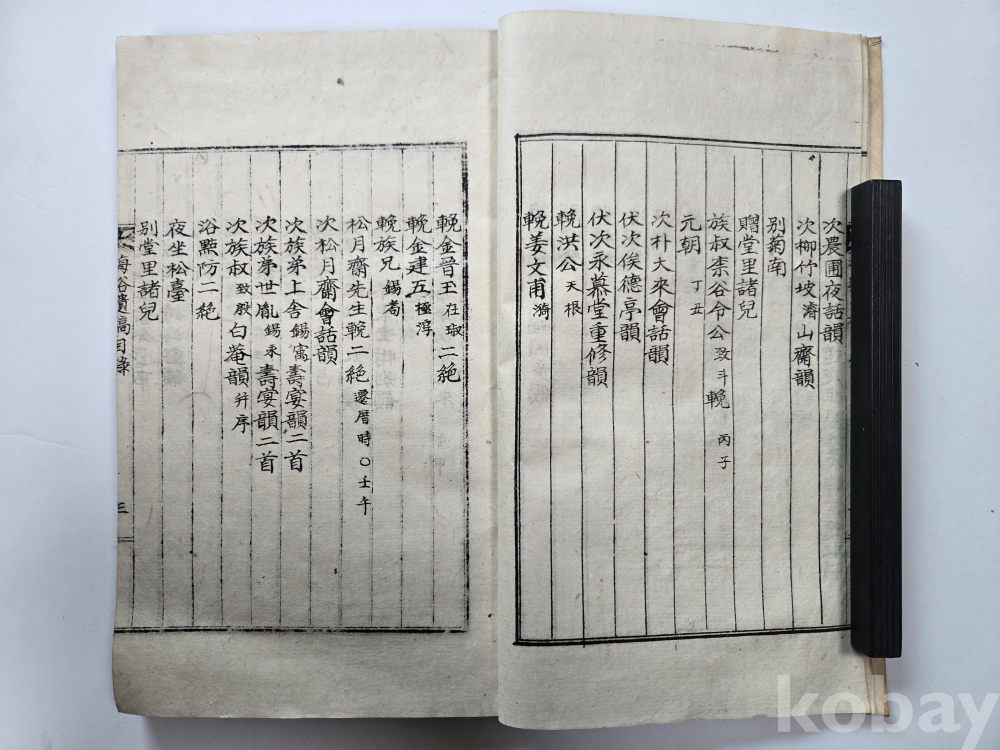 次農圃夜話韻
次柳竹坡濟山齋韻
別菊南
贈堂里諸兒
族叔柰谷令公致斗輓 丙子
元朝 丁丑
次朴大來會話韻
伏次俟德亭韻
伏次永慕堂重修韻
輓洪公天根
輓姜文甫漪
輓金晉王在琡二絶
輓金建五極浮
輓族兄錫耉
松月齋先生輓二絶還厝時○壬午
次松月齋會話韻
次族弟上舍錫寓壽宴韻二首
次族弟世胤錫永壽宴韻二首
次族叔致殷白菴韻并序
浴㸃防二絶
夜坐松臺
別堂里諸兒
谷遺稿目錄
三
kobay